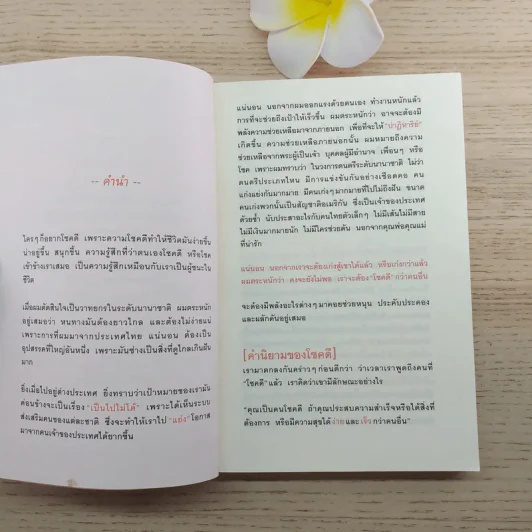 -- คำนำ --
ใครๆ ก็อยากโชคดี เพราะความโชคดีทำให้ชีวิตมันง่ายขึ้น
น่าอยู่ขึ้น สนุกขึ้น ความรู้สึกที่ว่าตนเองโชคดี หรือโชค
เข้าข้างเราเสมอ เป็นความรู้สึกเหมือนกับเราเป็นผู้ชนะใน
ชีวิต
เมื่อผมตัดสินใจเป็นวาทยกรในระดับนานาชาติ ผมตระหนัก
อยู่เสมอว่า หนทางมันต้องยาวไกล และต้องไม่ง่ายแน่
เพราะการที่ผมมาจากประเทศไทย แน่นอน ต้องเป็น
อุปสรรคที่ใหญ่อันหนึ่ง เพราะมันช่างเป็นสิ่งที่ดูไกลเกินฝัน
มาก
ยิ่งเมื่อไปอยู่ต่างประเทศ ยิ่งทราบว่าเป้าหมายของเรามัน
ค่อนข้างจะเป็นเรื่อง "เป็นไปไม่ได้" เพราะได้เห็นระบบ
ส่งเสริมคนของแต่ละชาติ ซึ่งจะทำให้เราไป "แย่ง" โอกาส
มาจากคนเจ้าของประเทศได้ยากขึ้น
แน่นอน นอกจากผมออกแรงด้วยตนเอง ทำงานหนักแล้ว
การที่จะช่วยถึงเป้าให้เร็วขึ้น ผมตระหนักว่า อาจจะต้องมี
พลังความช่วยเหลือมาจากภายนอก เพื่อที่จะให้ "ปาฏิหาริย์"
เกิดขึ้น ความช่วยเหลือภายนอกนั้น ผมหมายถึงความ
ช่วยเหลือจากพระผู้เป็นเจ้า บุคคลผู้มีอำนาจ เพื่อนๆ หรือ
โชค เพราะผมทราบว่า ในวงการดนตรีระดับนานาชาติ ไม่ว่า
ดนตรีประเภทไหน มีการแข่งขันกันอย่างเชือดคอ คน
เก่งแย่งกันมากมาย มีคนเก่งๆ มากมายที่ไปไม่ถึงฝัน ขนาด
คนเก่งพวกนั้นเป็นสัญชาติอเมริกัน ซึ่งเป็นเจ้าของประเทศ
ด้วยซ้ำ นับประสาอะไรกับคนไทยตัวเล็กๆ ไม่มีเส้นไม่มีสาย
ไม่มีเงินมากมายนัก ไม่มีใครช่วยดัน นอกจากคุณพ่อคุณแม่
ที่น่ารัก
แน่นอน นอกจากเราจะต้องเก่งสู้เขาได้แล้ว หรือเก่งกว่าแล้ว
ผมตระหนักว่า คงจะยังไม่พอ เราจะต้อง "โชคดี" กว่าคนอื่น
จะต้องมีพลังอะไรต่างๆ มาคอยช่วยหนุน ประคับประคอง
และผลักดันอยู่เสมอ
[คำนิยามของโชคดี]
เรามาตกลงกันคร่าวๆ ก่อนดีกว่า ว่าเวลาเราพูดถึงคนที่
"โชคดี" แล้ว เราคิดว่าเขามีลักษณะอย่างไร
"คุณเป็นคนโชคดี ถ้าคุณประสบความสำเร็จหรือได้สิ่งที่
ต้องการ หรือมีความสุขได้ง่ายและเร็วกว่าคนอื่น"